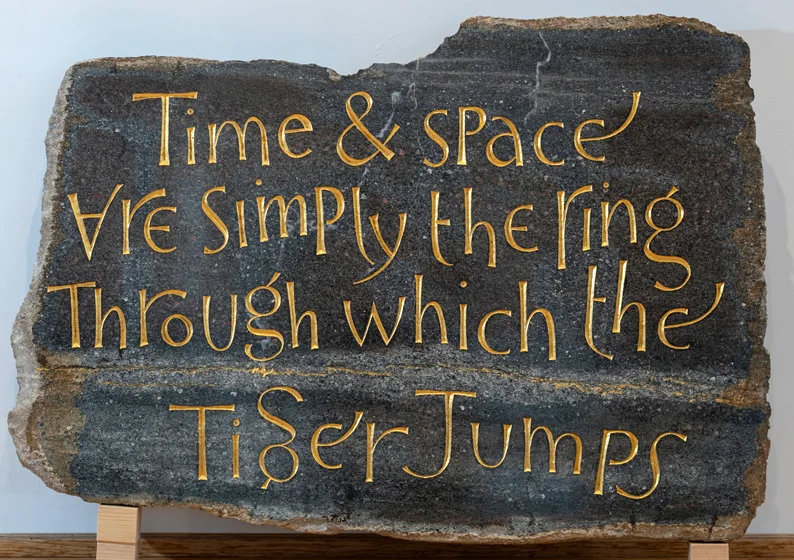 Time & space
Are Simply the ring
Through which the
Tiger Jumps